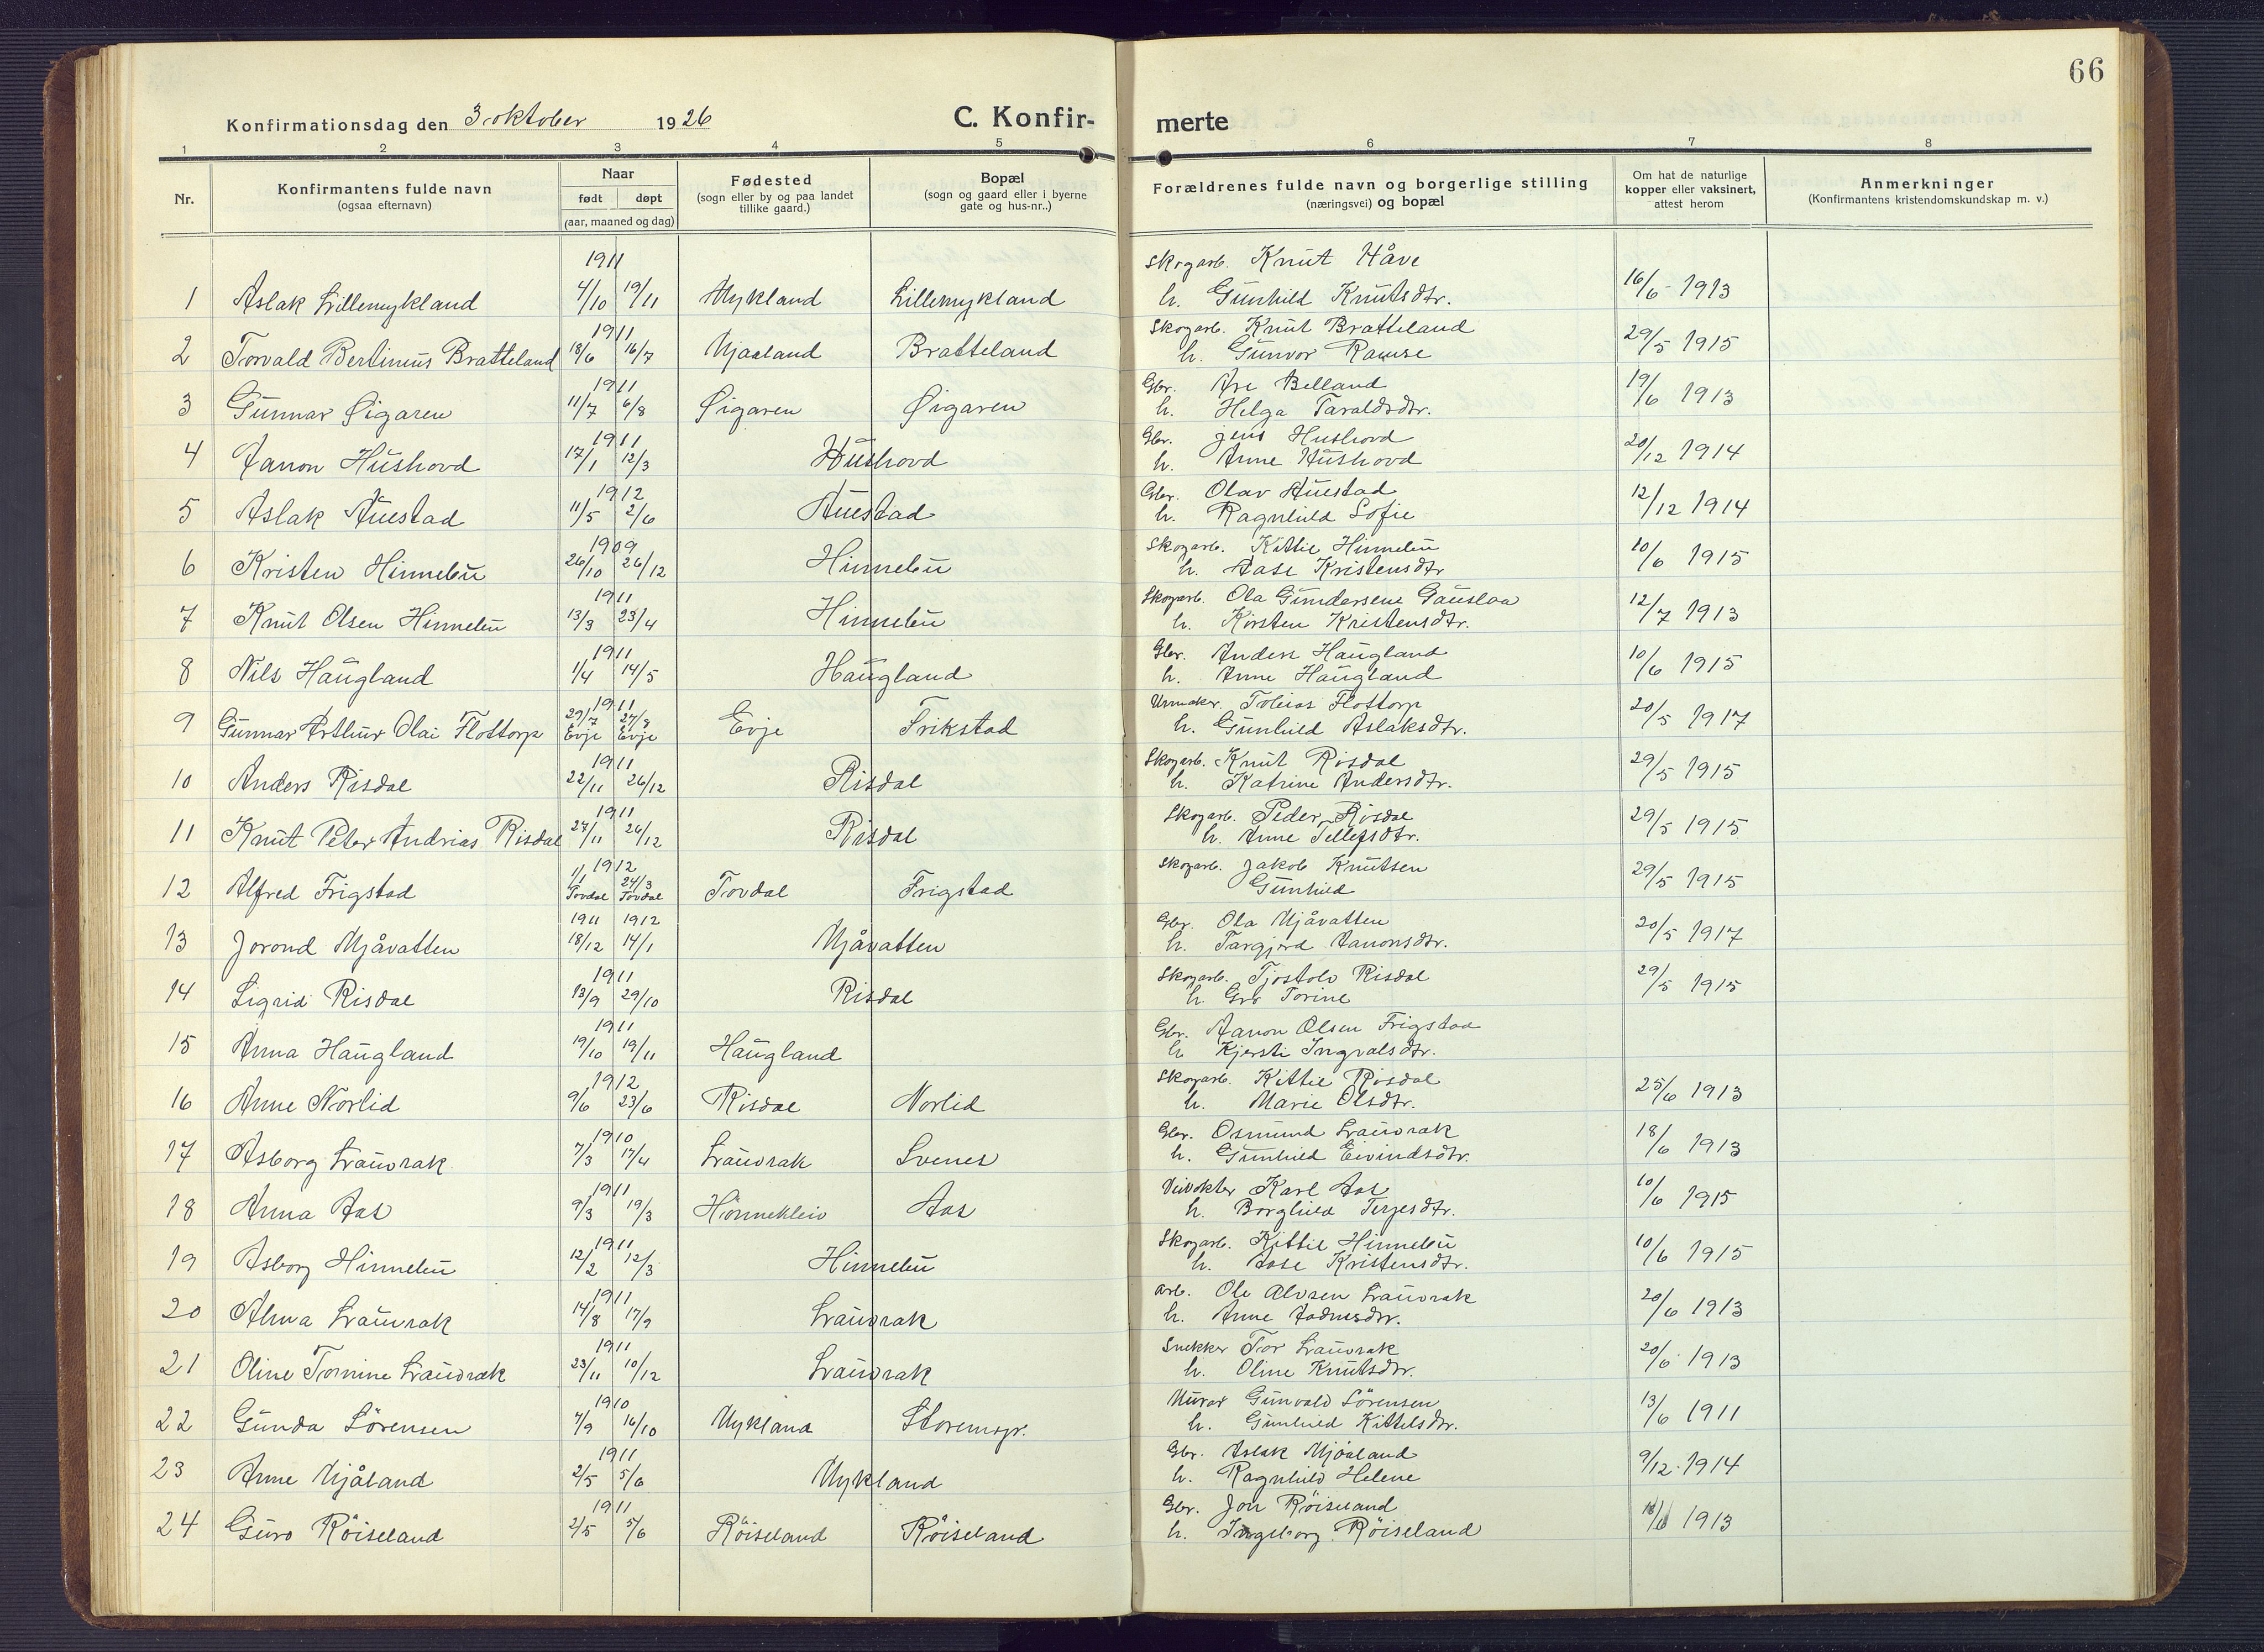 66
Konfirmationsdag den 3 oktober 1926
C. Konfir-
merte
1 2 3 4 5 6 7 8
Nr.
Konfirmantens fulde navn
(ogsaa efternavn)
Naar
født døpt
(aar, maaned og dag)
Fødested
(sogn eller by og paa landet
tillike gaard.)
Bopæl
(sogn og gaard eller i byerne
gate og hus-nr..)
Forældrenes fulde navn og borgerlige stilling
(næringsvei) og bopæl
Om hat de naturlige
kopper eller vaksinert,
attest herom
Anmerkninger
(Konfirmantens kristendomskundskap m. v.)
1911 Skogarb. Knut Håve
1 Aslak Lillemykland 4/10 19/11 Mykland Lillemykland h. Gunhild Knutsdtr. 16/6 1913
1911 Skogarb. Knut Bratteland
2 Torvald Bertinius Bratteland 18/6 16/7 Mjaaland Bratteland h. Gunvor 29/5 1915
1911 Gbr. Are Belland
3 Gunnar Øigaren 11/7 6/8 Øigaren Øigaren h. Helga Taraldsdtr. 19/6 1913
1911 Gbr. Jens Hushovd
4 Aanon Hushovd 17/1 12/3 Hushovd h. Anne Hushovd 20/12 1914
1912 Gbr. Olav Auestad
5 Aslak Auestad 11/5 2/6 Auestad h. Ragnhild Sofie 12/12 1914
1909 Skogarb. Kittil Hinnebu
6 Kristen Hinnebu 26/10 26/12 Hinnebu h. Aase Kristensdtr 10/6 1915
1911 Skogarb. Ola Gundersene Gauslaa
7 Knut Olsen Hinnebu 13/3 23/4 Hinnebu h. Kirsten Kristensdtr. 12/7 1913
1911 Gbr. Anders Haugland
8 Nils Haugland 1/4 14/5 Haugland h. Anne Haugland 10/6 1915
1911 Urmaker. Tobias Flottorp
9 Gunnar Arthur Olai Flottorp 29/7 27/8 Evje Frikstad h. Gunhild Aslaksdtr. 20/5 1917
Evje Evje
1911 Skogarb. Knut Risdal
10 Anders Risdal 22/11 26/12 Risdal h. Katrine Andersdtr. 29/5 1915
1911 Skogarb. Peder Risdal
11 Knut Peter Andrias Risdal 27/11 26/12 Risdal h. Anne Tellefsdtr. 29/5 1915
1912 Skogarb. Jakob Knutsen
12 Alfred Frigstad 1/1 24/3 Tovdal Frigstad Gunhild 29/5 1915
Tovdal Tovdal
1911 1912 Gbr. Ola Mjåvatten
13 Jorond Mjåvatten 18/12 14/1 Mjåvatten h. Targjerd Aanonsdtr. 20/5 1917
1911 Skogarb. Tjostolv Risdal
14 Sigrid Risdal 13/9 29/10 Risdal h. Gro Torine 29/5 1915
1911 Gbr. Aanon Olsen Frigstad
15 Anna Haugland 19/10 19/11 Haugland h Kjersti Ingvalsdtr.
1912 Skogarb. Kittil Risdal
16 Anne Norlid 9/6 23/6 Risdal Norlid h. Marie Olsdtr. 25/6 1913
1910 Gbr. Osmund Lauvrak
17 Asborg Lauvrak 7/3 17/4 Lauvrak Svenes h. Gunhild Eivindsdtr. 18/6 1913
1911 Veivokter Karl Aas
18 Anna Aas 9/3 19/3 Hönnekleiv Aas h. Borghild Terjesdtr. 10/6 1915
1911 Skogarb. Kittil Hinnebu
19 Asborg Hinnebu 12/2 12/3 Hinnebu h. Aase Kristensdtr. 10/6 1915
1911 Arb. Ole Alvsen Lauvrak
20 Alma Lauvrak 14/8 17/9 Lauvrak h. Anne 20/6 1913
1911 Snekker Tor Lauvrak
21 Oline Tomine Lauvrak 23/11 10/12 Lauvrak h. Oline Knutsdtr. 20/6 1913
1910 Murar Gunvald Sörensen
22 Gunda Sörensen 7/9 16/10 Mykland Storemyr. h. Gunhild Kittelsdtr. 13/6 1911
1911 Gbr. Aslak Mjåland
23 Anne Mjåland 2/5 5/6 Mykland h. Ragnhild Helene 9/12 1914
1911 Gbr. Jon Röiseland
24 Guro Röiseland 2/5 5/6 Röiseland Röiseland h. Ingeborg Röiseland 1913